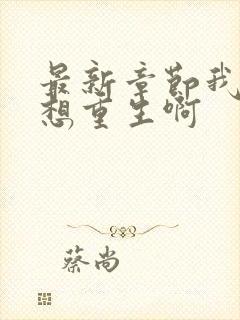 最新章节我
想重生啊
蔡尚